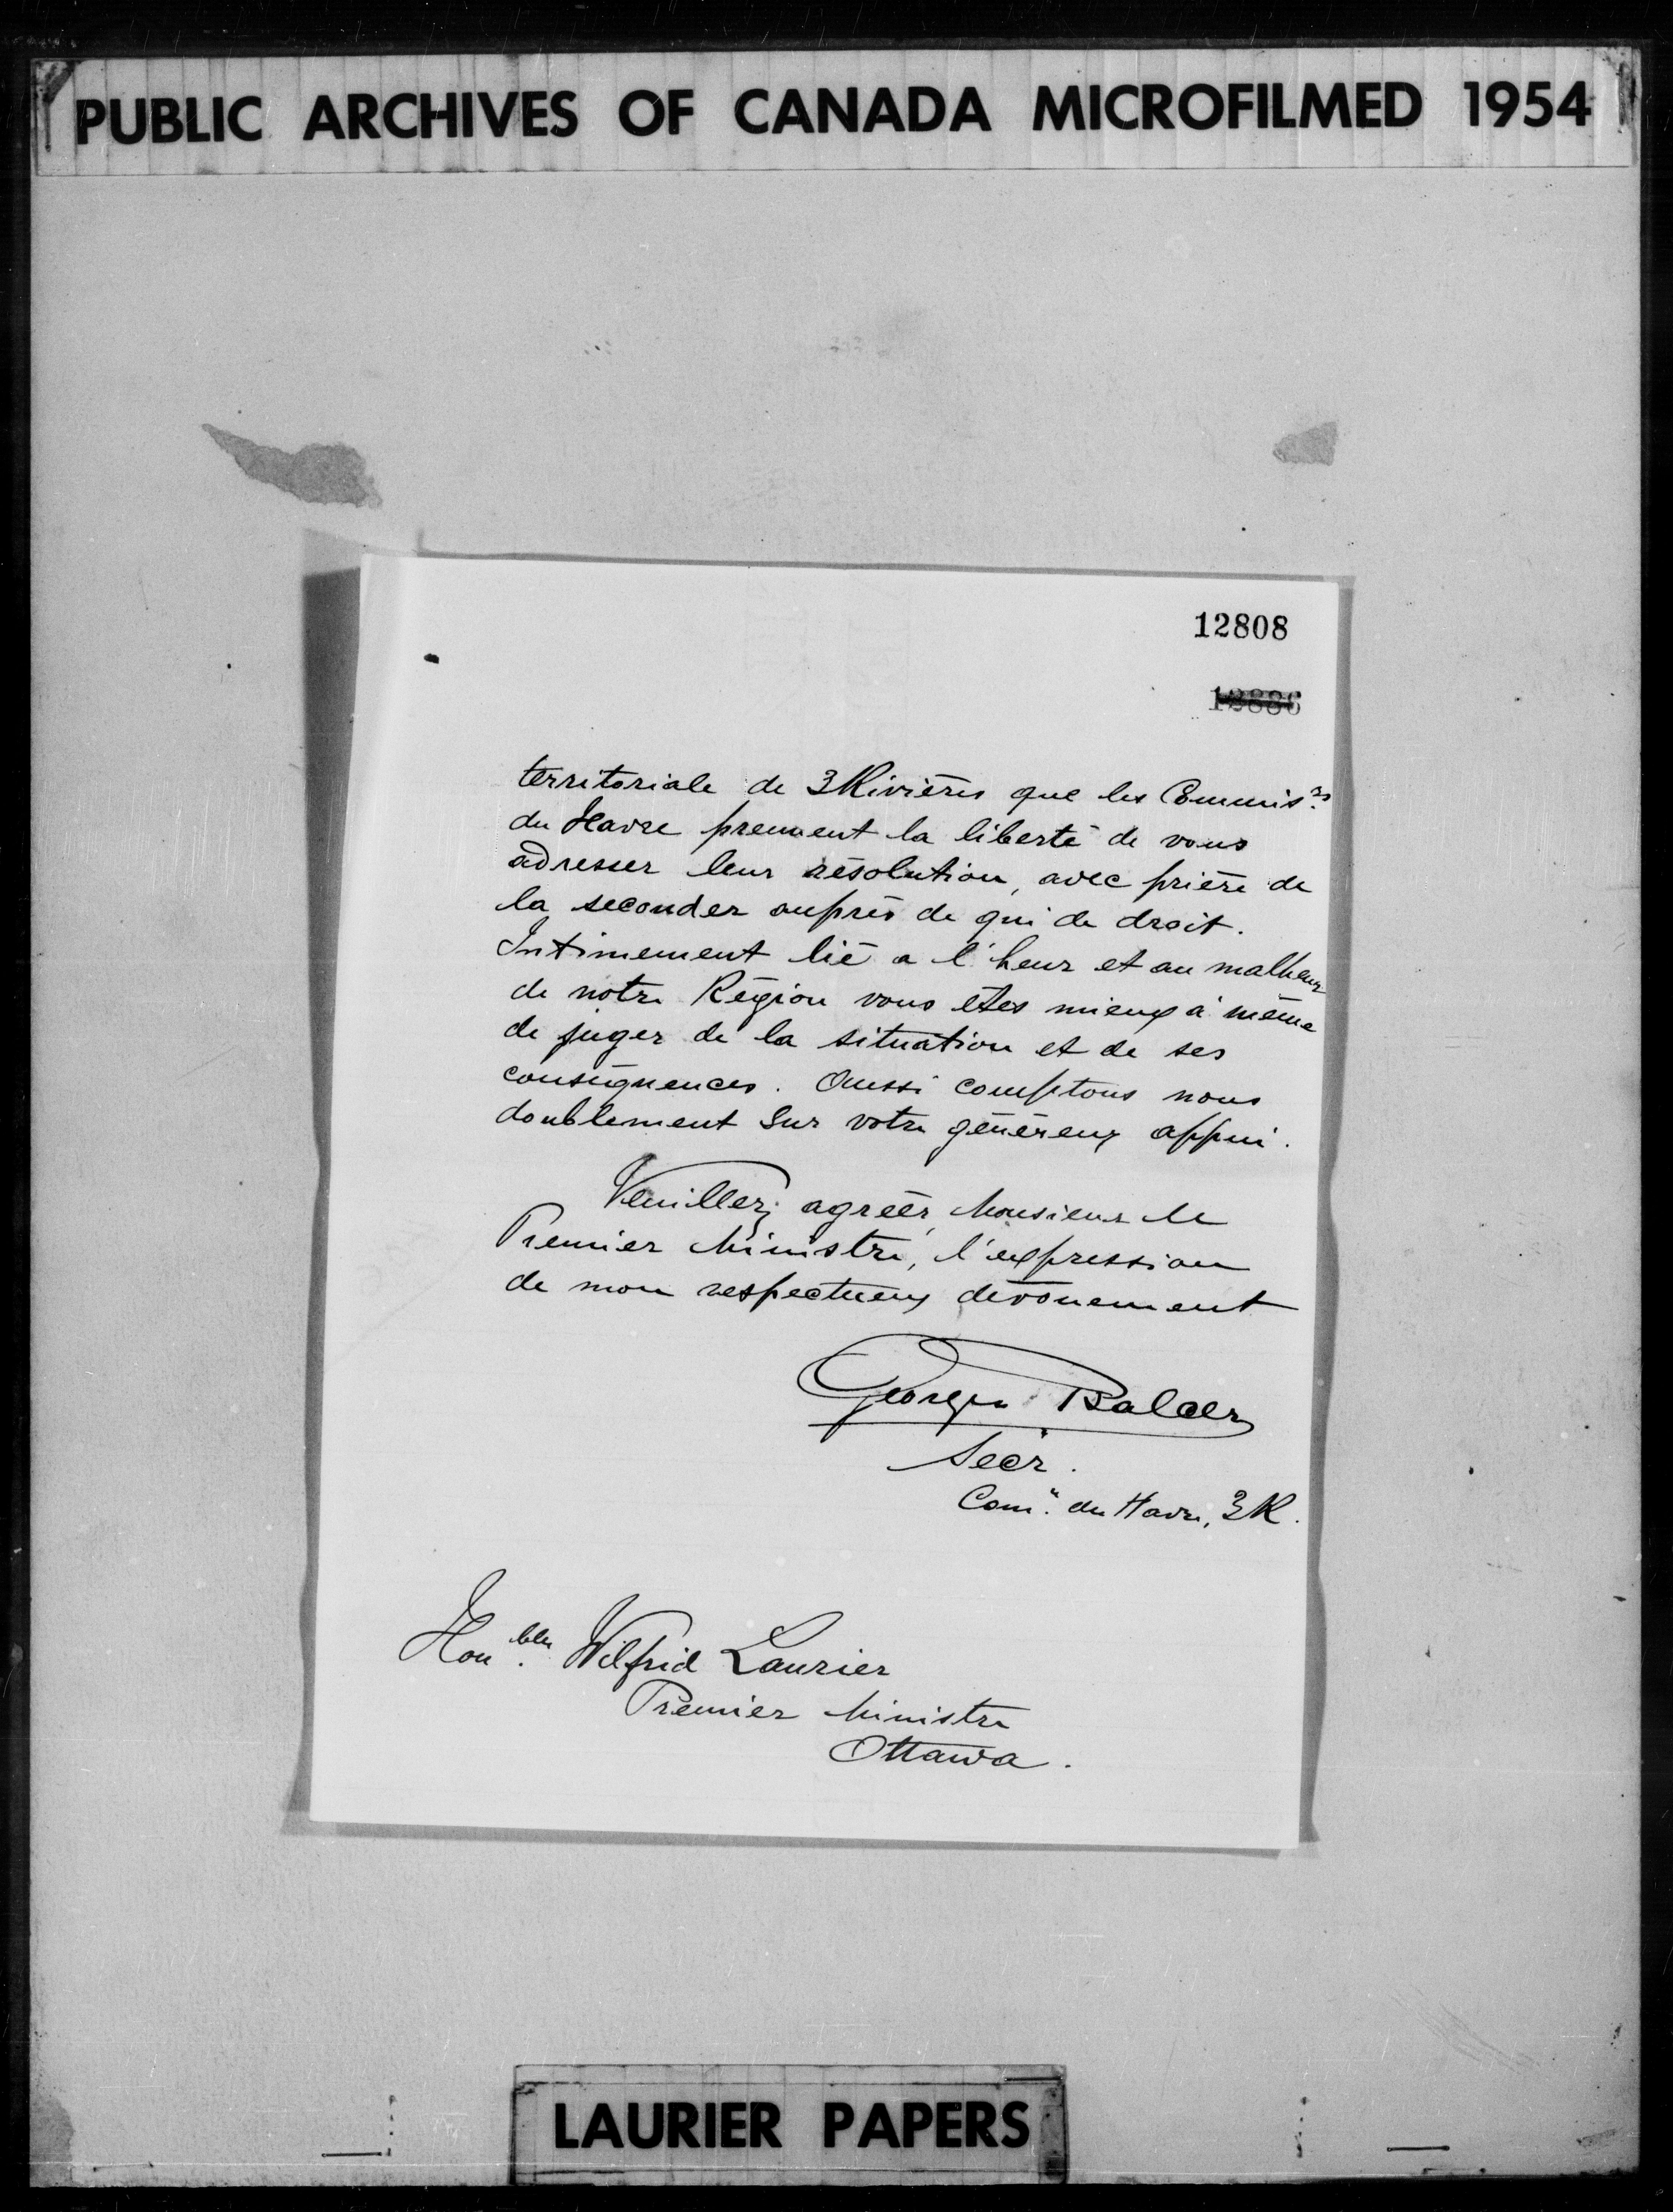 PUBLIC ARCHIVES OF CANADA MICROFILMED 1954
12808
territoriale de 3Rivières que les Commis.rs
du Havre prennent la liberté de vous
adresser leur résolution, avec prière de
la seconder auprès de qui de droit.
Intimement lié a l'heur et au malheur
de notre Région vous êtes mieux à même
de juger de la situation et de ses
conséquences. Aussi comptons nous
doublement sur votre généreux appui.
Veuillez agréer, Monsieur le
Premier Ministre, l'expression
de mon respectueux dévouement
Georges Balcer
Secr.
Com.n du Havre, 3R.
Hon.ble Wilfrid Laurier
Premier Ministre
Ottawa.
LAURIER PAPERS